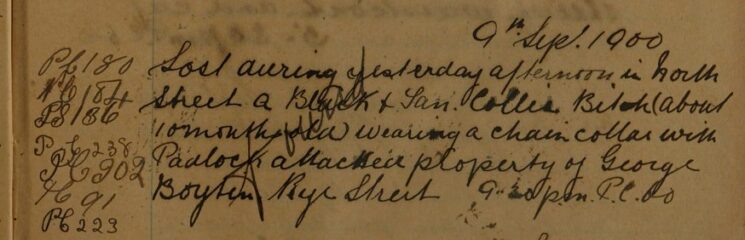 9th Sept. 1900
PC 180 Lost during yesterday afternoon in North
PC 184 Street a Black & Tan Collie Bitch (about
PC 186 10 months old) wearing a chain collar with
PC 238 Padlock attached property of George
PC 202 Boyten, Rye Street 9.30pm. P.C. 20
PC 91
PC 223